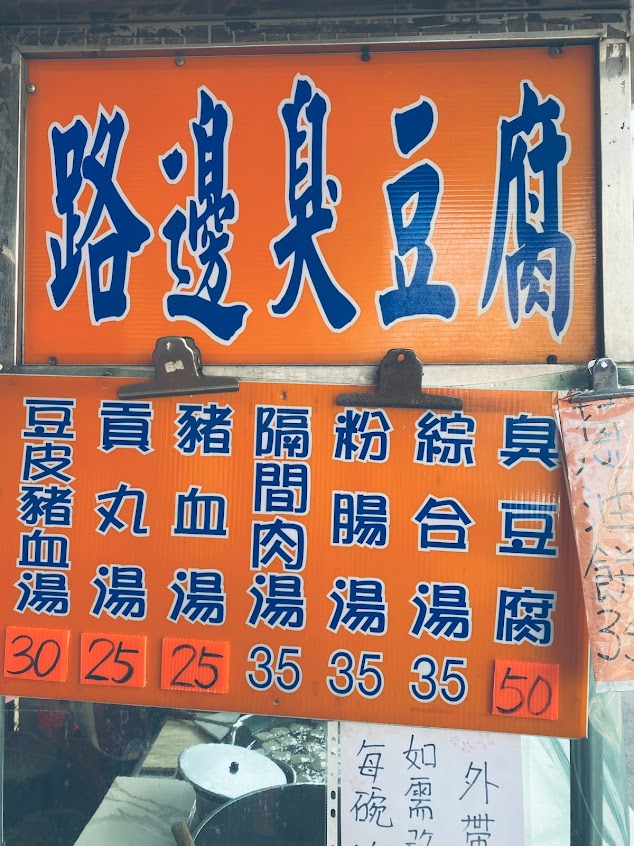 路邊臭豆腐
臭豆腐 50
綜合湯 35
粉腸湯 35
隔間肉湯 35
豬血湯 25
貢丸湯 25
豆皮豬血湯 30
35
外帶
如需
每碗